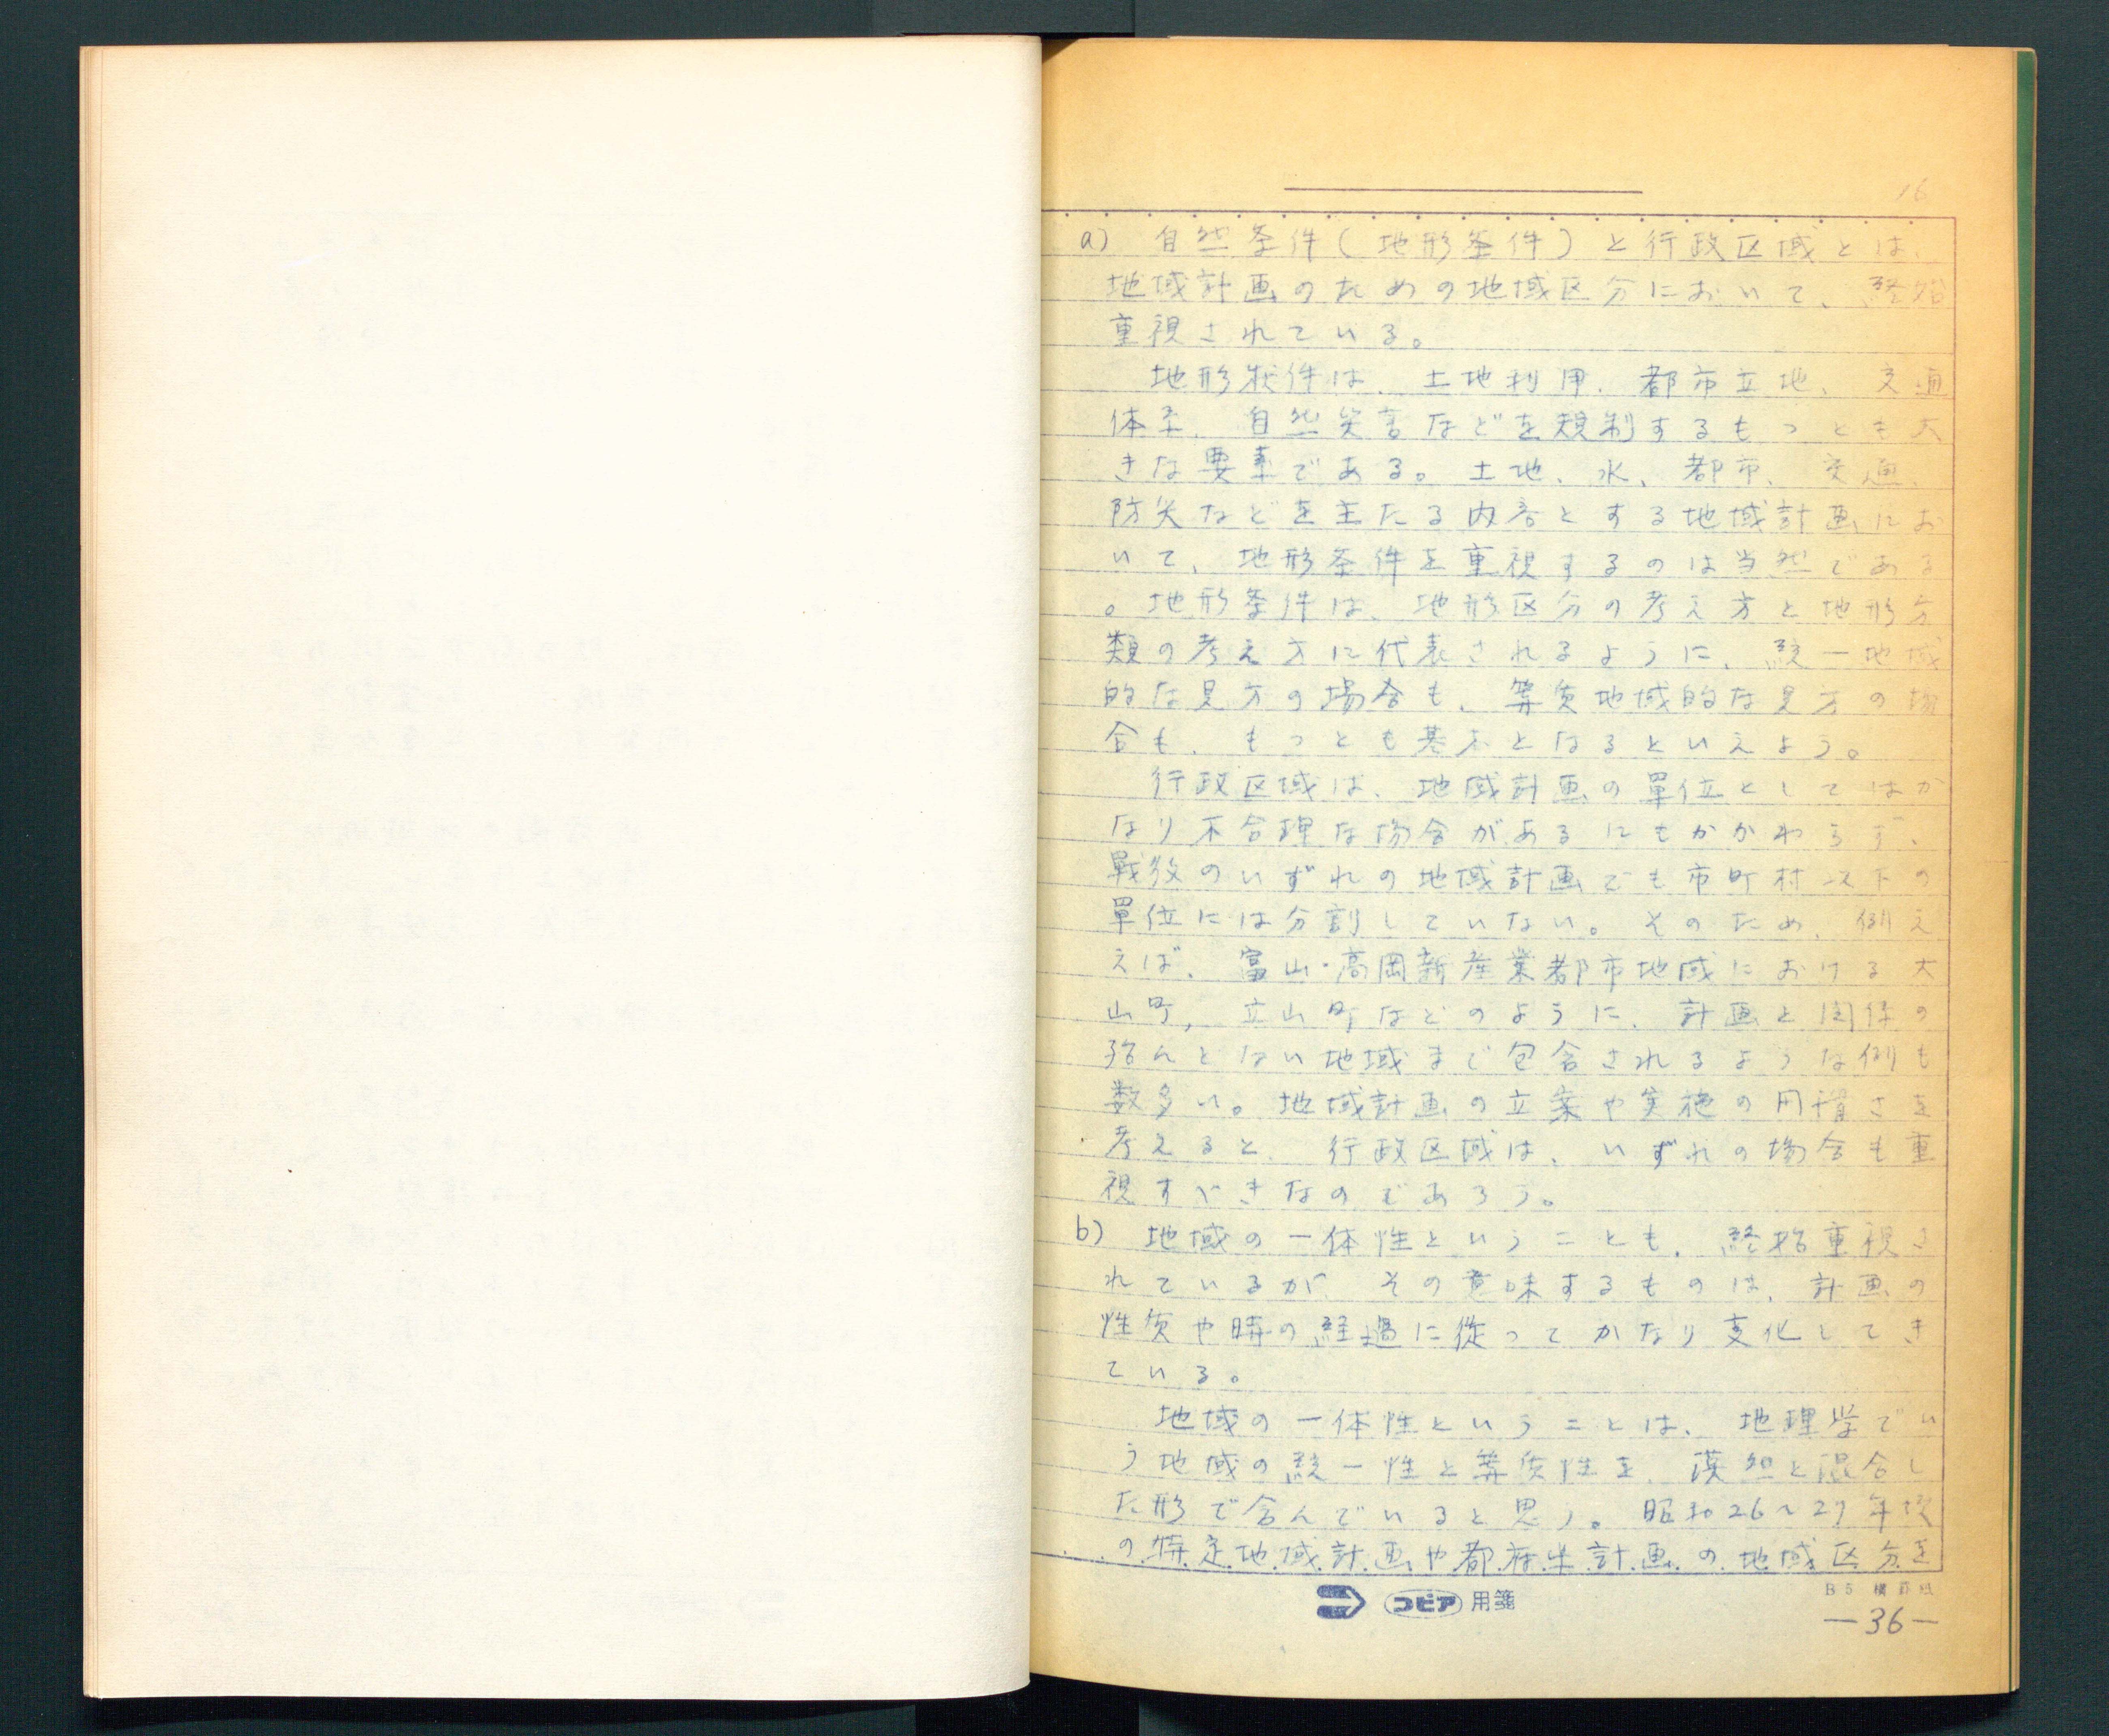 16
a) 自然条件(地形条件)と行政区域とは、
地域計画のための地域区分において、終始
重視されている。
地形状件は、土地利用、都市立地、交通
体系、自然災害などを規制するもっとも大
きな要素である。土地、水、都市、交通、
防災などを主たる内容とする地域計画にお
いて、地形条件を重視するのは当然である
。地形条件は、地形区分の考え方と地形分
類の考え方に代表されるように、統一地域
的な見方の場合も、等質地域的な見方の場
合も、もっとも基本となるといえよう。
行政区域は、地域計画の單位としてはか
なり不合理な場合があるにもかかわらず、
戦後のいずれの地域計画でも市町村以下の
單位には分割していない。そのため、例え
えば、富山・高岡新産業都市地域における大
山町，立山町などのように、計画と関係の
殆んどない地域まで包含されるような例も
数多い。地域計画の立案や実施の円滑さを
考えると、行政区域は、いずれの場合も重
視すべきなのであろう。
b) 地域の一体性ということも、終始重視さ
れているが、その意味するものは、計画の
性質や時の経過に従ってかなり変化してき
ている。
地域の一体性ということは、地理学でい
う地域の統一性と等質性を、漠然と混合し
た形で含んでいると思う。昭和26～27年頃
の特定地域計画や都府県計画の地域区分を
コピア 用箋
B5 横罫紙
—36—